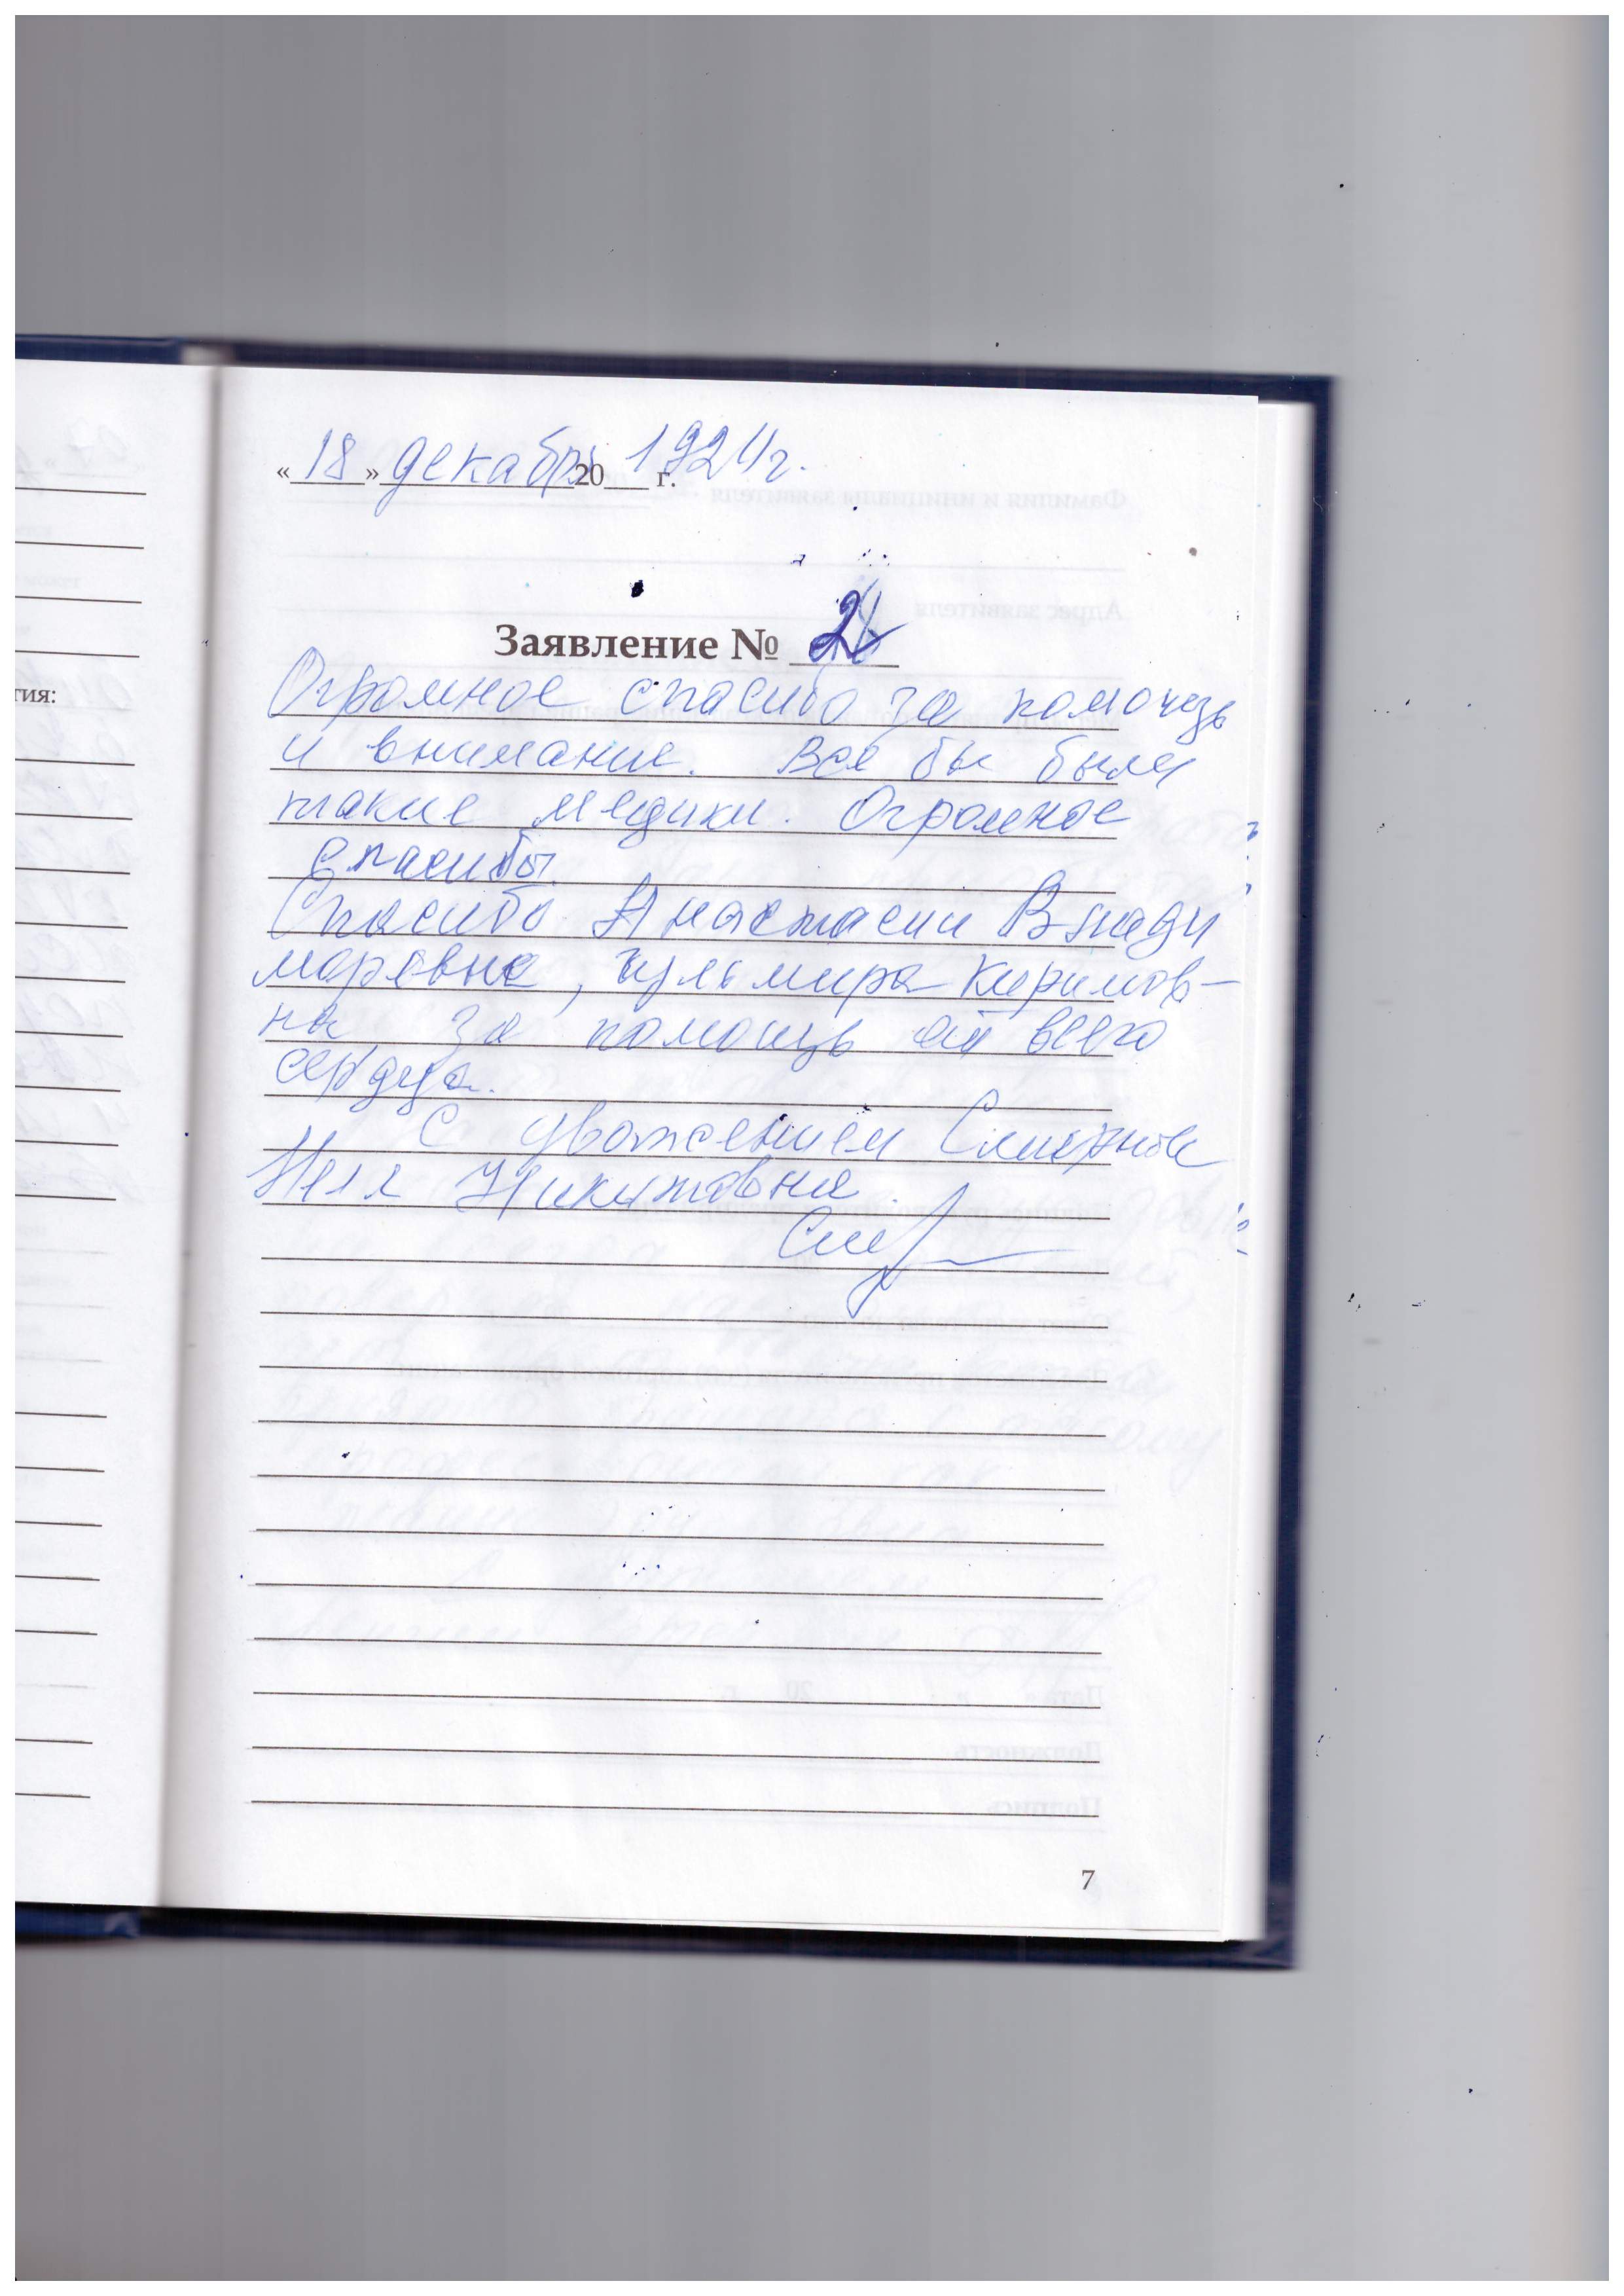 «18» декабря 20 1924г. г.
Заявление № 2
Огромное спасибо за помочщь
и внимание. Все бы были
такие медики. Огромное
спасибо.
Спасибо Анастасии Влади
моровна, Гульмира Киримов-
на за помощь от всего
сердца.
С уважением Смирнова
Неля Никитовна.
гия:
7